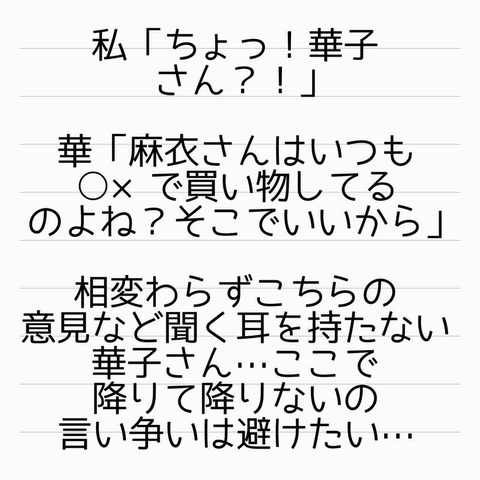 私「ちょっ！華子
さん？！」
華「麻衣さんはいつも
○× で買い物してる
のよね？そこでいいから」
相変わらずこちらの
意見など聞く耳を持たない
華子さん…ここで
降りて降りないの
言い争いは避けたい…